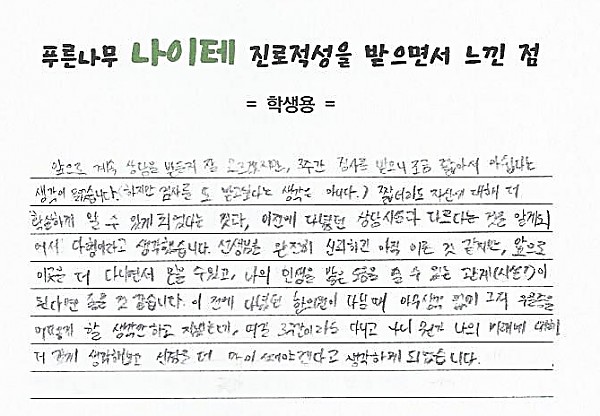 푸른나무 나이테 진로적성을 받으면서 느낀 점
= 학생용 =
앞으로 계속 상담을 받을지 잘 모르겠지만, 3주간 검사를 받으니 조금 짧아서 아쉽다는
생각이 들었습니다. (하지만 검사를 또 받고싶다는 생각은 아니다.) 짧더라도 자신에 대해 더
확실하게 알 수 있게 되었다는 것과, 이전에 다녔던 상담시설과 다르다는 것을 알게되
어서 다행이라고 생각했습니다. 선생님을 완전히 신뢰하긴 아직 이른 것 같지만, 앞으로
이곳을 더 다니면서 믿을 수 있고, 나의 인생을 많은 도움을 줄 수 있는 관계(시설?)이
된다면 좋을 것 같습니다. 이 전에 다녔던 병원에 다닐 때 아무생각 없이 그저 우울증을
어떻게 할 생각만하고 지냈는데, 여길 3주간이라도 다니고 나니 뭔가 나의 미래에 대해
더 깊게 생각해보고 시작을 더 많이 해야겠다고 생각하게 되었습니다.